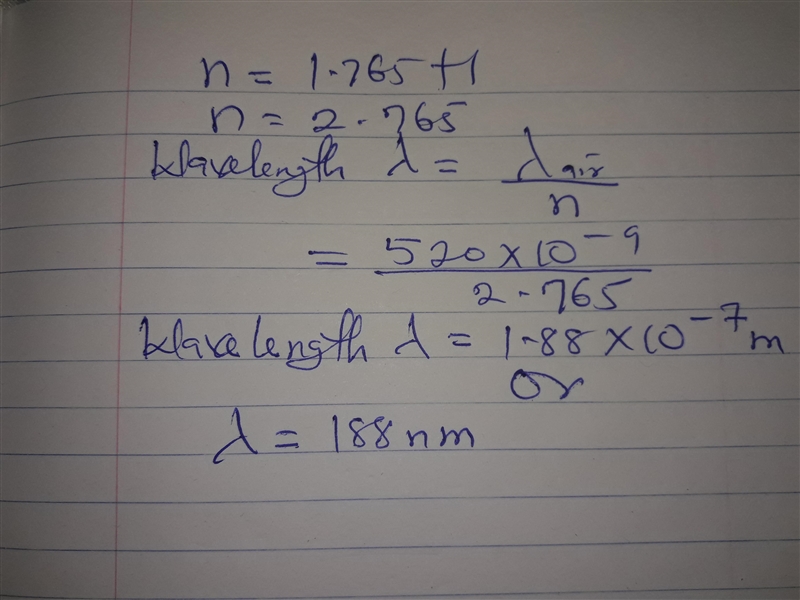 n = 1.765 + 1
n = 2.765
Wavelength λ = λair / n
= 520 × 10⁻⁹ / 2.765
Wavelength λ = 1.88 × 10⁻⁷ m
Or
λ = 188 nm